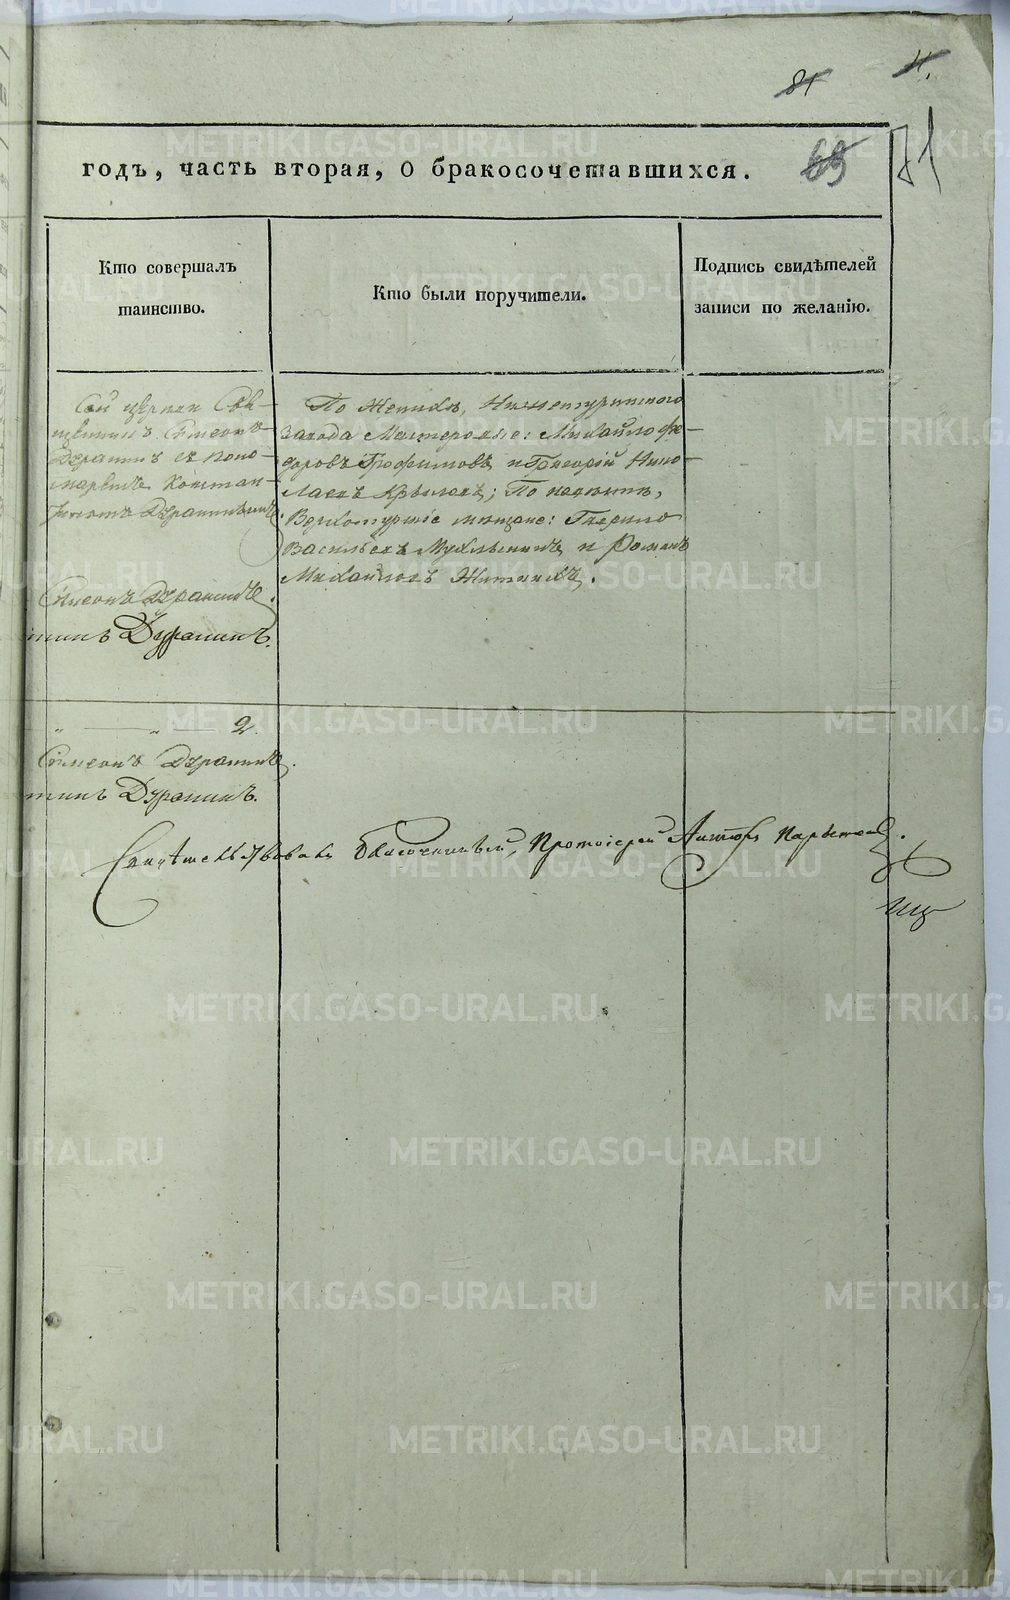 81 11.
годъ, часть вторая, о бракосочетавшихся. 69 71
Кто совершалъ
таинство.
Кто были поручители.
Подпись свидѣтелей
записи по желанію.
Сей церкви Свя-
щенникъ Симеонъ
Дерягинъ съ поно-
маремъ Констан-
тиномъ Дерягинымъ
Симеонъ Дерягинъ.
тинъ Дерягинъ.
По женихѣ, Нижнетуринскаго
завода Мастеровые: Михайло Ѳе-
доровъ Трофимовъ и Григорій Нико-
лаевъ Крыловъ; По невѣстѣ,
Верхотурскіе мѣщане: Гаврило
Васильевъ Мухлынинъ и Романъ
Михайловъ Житниковъ.
„ — „ — 2.
Симеонъ Дерягинъ.
тинъ Дерягинъ.
Свидѣтельствовалъ благочинный, Протоіерей
METRIKI.GASO-URAL.RU